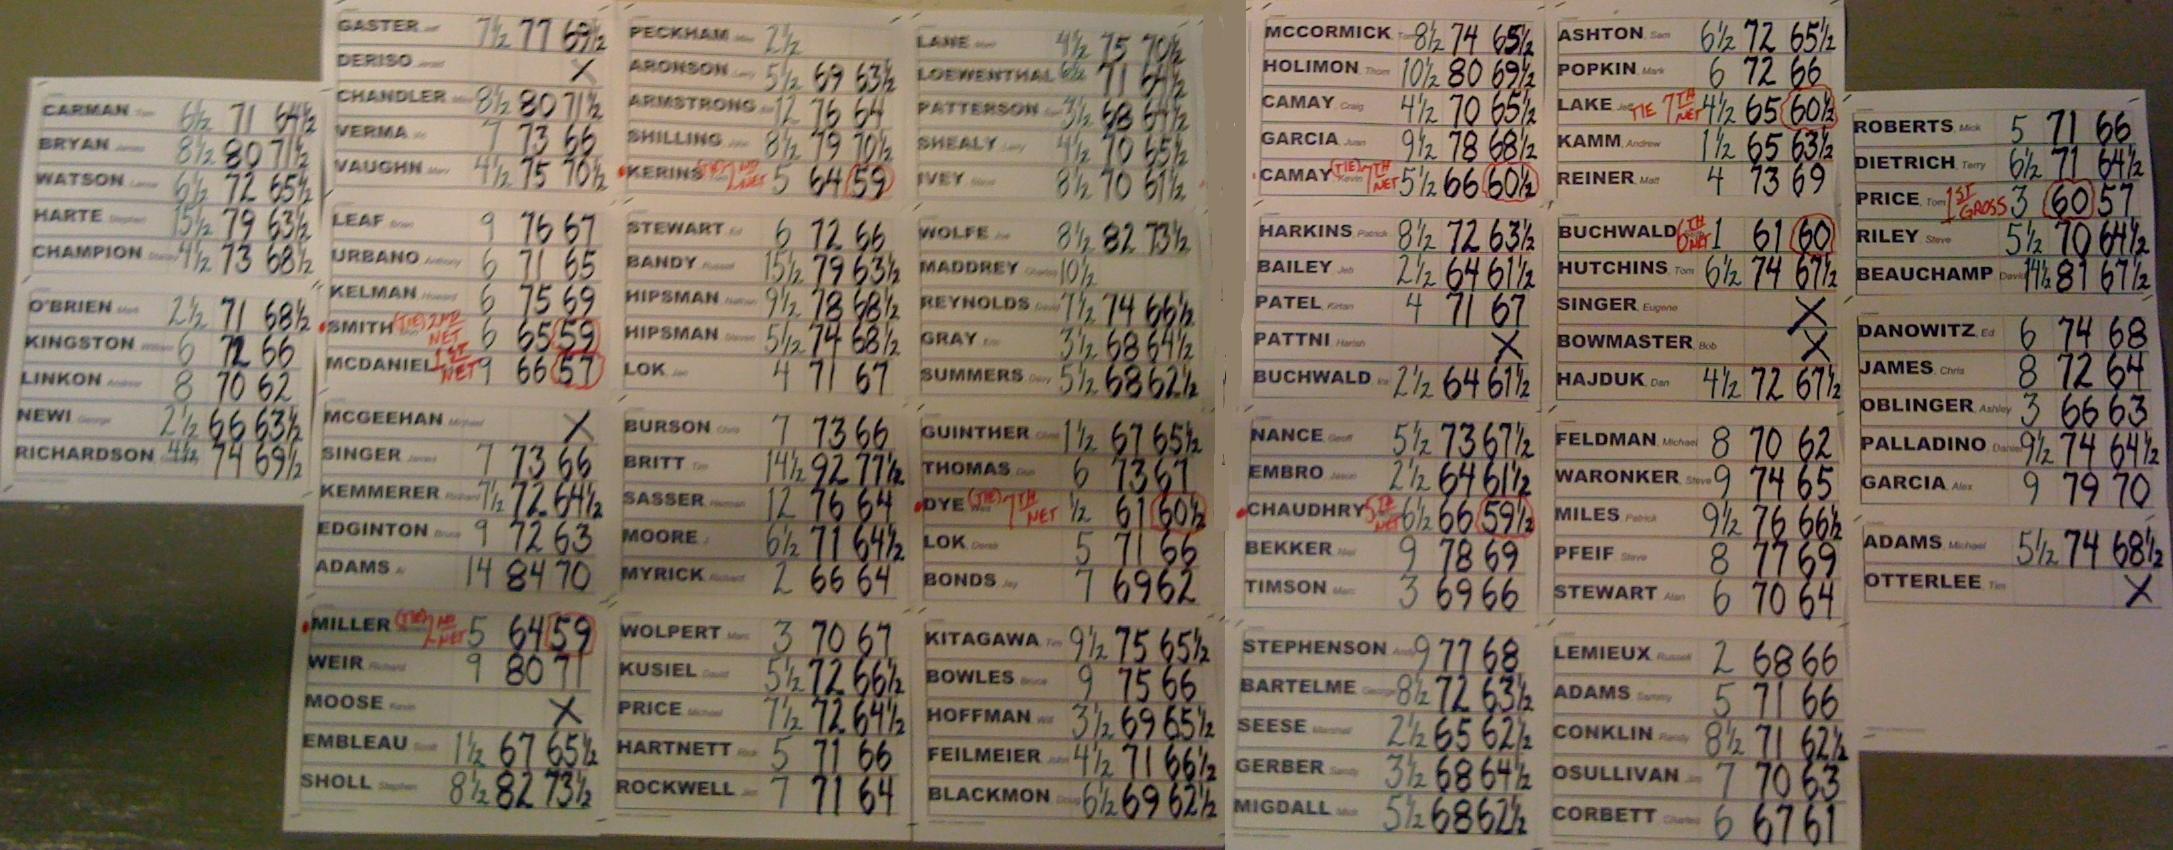 CARMAN 6½ 71 64½
BRYAN 8½ 80 71½
WATSON 6½ 72 65½
HARTE 15½ 79 63½
CHAMPION 4½ 73 68½
O'BRIEN 2½ 71 68½
KINGSTON 6 72 66
LINKON 8 70 62
NEWI 2½ 66 63½
RICHARDSON 4½ 74 69½
GASTER 7½ 77 69½
DERISO X
CHANDLER 8½ 80 71½
VERMA 7 73 66
VAUGHN 4½ 75 70½
LEAF 9 76 67
URBANO 6 71 65
KELMAN 6 75 69
SMITH (TIE) 2ND NET 6 65 59
MCDANIEL 1ST NET 9 66 57
MCGEEHAN X
SINGER 7 73 66
KEMMERER 7½ 72 64½
EDGINTON 9 72 63
ADAMS 14 84 70
MILLER (TIE) 2ND NET 5 64 59
WEIR Richard 9 80 71
MOOSE Kevin X
EMBLEAU Scott 1½ 67 65½
SHOLL Stephen 8½ 82 73½
PECKHAM 2½
ARONSON 5½ 69 63½
ARMSTRONG 12 76 64
SHILLING 8½ 79 70½
KERINS (TIE) 2ND NET 5 64 59
STEWART Ed 6 72 66
BANDY Russell 15½ 79 63½
HIPSMAN 9½ 78 68½
HIPSMAN Steven 5½ 74 68½
LOK 4 71 67
BURSON Chris 7 73 66
BRITT Tim 14½ 92 77½
SASSER Herman 12 76 64
MOORE J 6½ 71 64½
MYRICK Richard 2 66 64
WOLPERT Marc 3 70 67
KUSIEL David 5½ 72 66½
PRICE Michael 7½ 72 64½
HARTNETT Rick 5 71 66
ROCKWELL 7 71 64
LANE 4½ 75 70½
LOEWENTHAL 6½ 71 64½
PATTERSON 3½ 68 64½
SHEALY Larry 4½ 70 65½
IVEY 8½ 70 61½
WOLFE 8½ 82 73½
MADDREY Charles 10½
REYNOLDS David 7½ 74 66½
GRAY Eric 3½ 68 64½
SUMMERS 5½ 68 62½
GUINTHER Chris 1½ 67 65½
THOMAS 6 73 67
DYE (TIE) 7TH NET ½ 61 60½
LOK Derek 5 71 66
BONDS Jay 7 69 62
KITAGAWA Tim 9½ 75 65½
BOWLES Bruce 9 75 66
HOFFMAN Will 3½ 69 65½
FEILMEIER John 4½ 71 66½
BLACKMON Doug 6½ 69 62½
MCCORMICK 8½ 74 65½
HOLIMON Thom 10½ 80 69½
CAMAY Craig 4½ 70 65½
GARCIA Juan 9½ 78 68½
CAMAY Kevin (TIE) 7TH NET 5½ 66 60½
HARKINS Patrick 8½ 72 63½
BAILEY Jeb 2½ 64 61½
PATEL Kirtan 4 71 67
PATTNI Harish X
BUCHWALD 2½ 64 61½
NANCE Geoff 5½ 73 67½
EMBRO Jason 2½ 64 61½
CHAUDHRY 5TH NET 6½ 66 59½
BEKKER Niel 9 78 69
TIMSON Marc 3 69 66
STEPHENSON Andy 9 77 68
BARTELME George 8½ 72 63½
SEESE Marshall 2½ 65 62½
GERBER Sandy 3½ 68 64½
MIGDALL 5½ 68 62½
ASHTON Sam 6½ 72 65½
POPKIN Mark 6 72 66
LAKE TIE 7TH NET 4½ 65 60½
KAMM Andrew 1½ 65 63½
REINER Matt 4 73 69
BUCHWALD 6TH NET 1 61 60
HUTCHINS Tom 6½ 74 67½
SINGER Eugene X
BOWMASTER Bob X
HAJDUK Dan 4½ 72 67½
FELDMAN Michael 8 70 62
WARONKER Steve 9 74 65
MILES Patrick 9½ 76 66½
PFEIF Steve 8 77 69
STEWART Alan 6 70 64
LEMIEUX Russell 2 68 66
ADAMS Sammy 5 71 66
CONKLIN Randy 8½ 71 62½
OSULLIVAN Jim 7 70 63
CORBETT Charles 6 67 61
ROBERTS Mick 5 71 66
DIETRICH Terry 6½ 71 64½
PRICE Tom 1ST GROSS 3 60 57
RILEY Steve 5½ 70 64½
BEAUCHAMP David 14½ 81 67½
DANOWITZ Ed 6 74 68
JAMES Chris 8 72 64
OBLINGER Ashley 3 66 63
PALLADINO Daniel 9½ 74 64½
GARCIA Alex 9 79 70
ADAMS Michael 5½ 74 68½
OTTERLEE Tim X